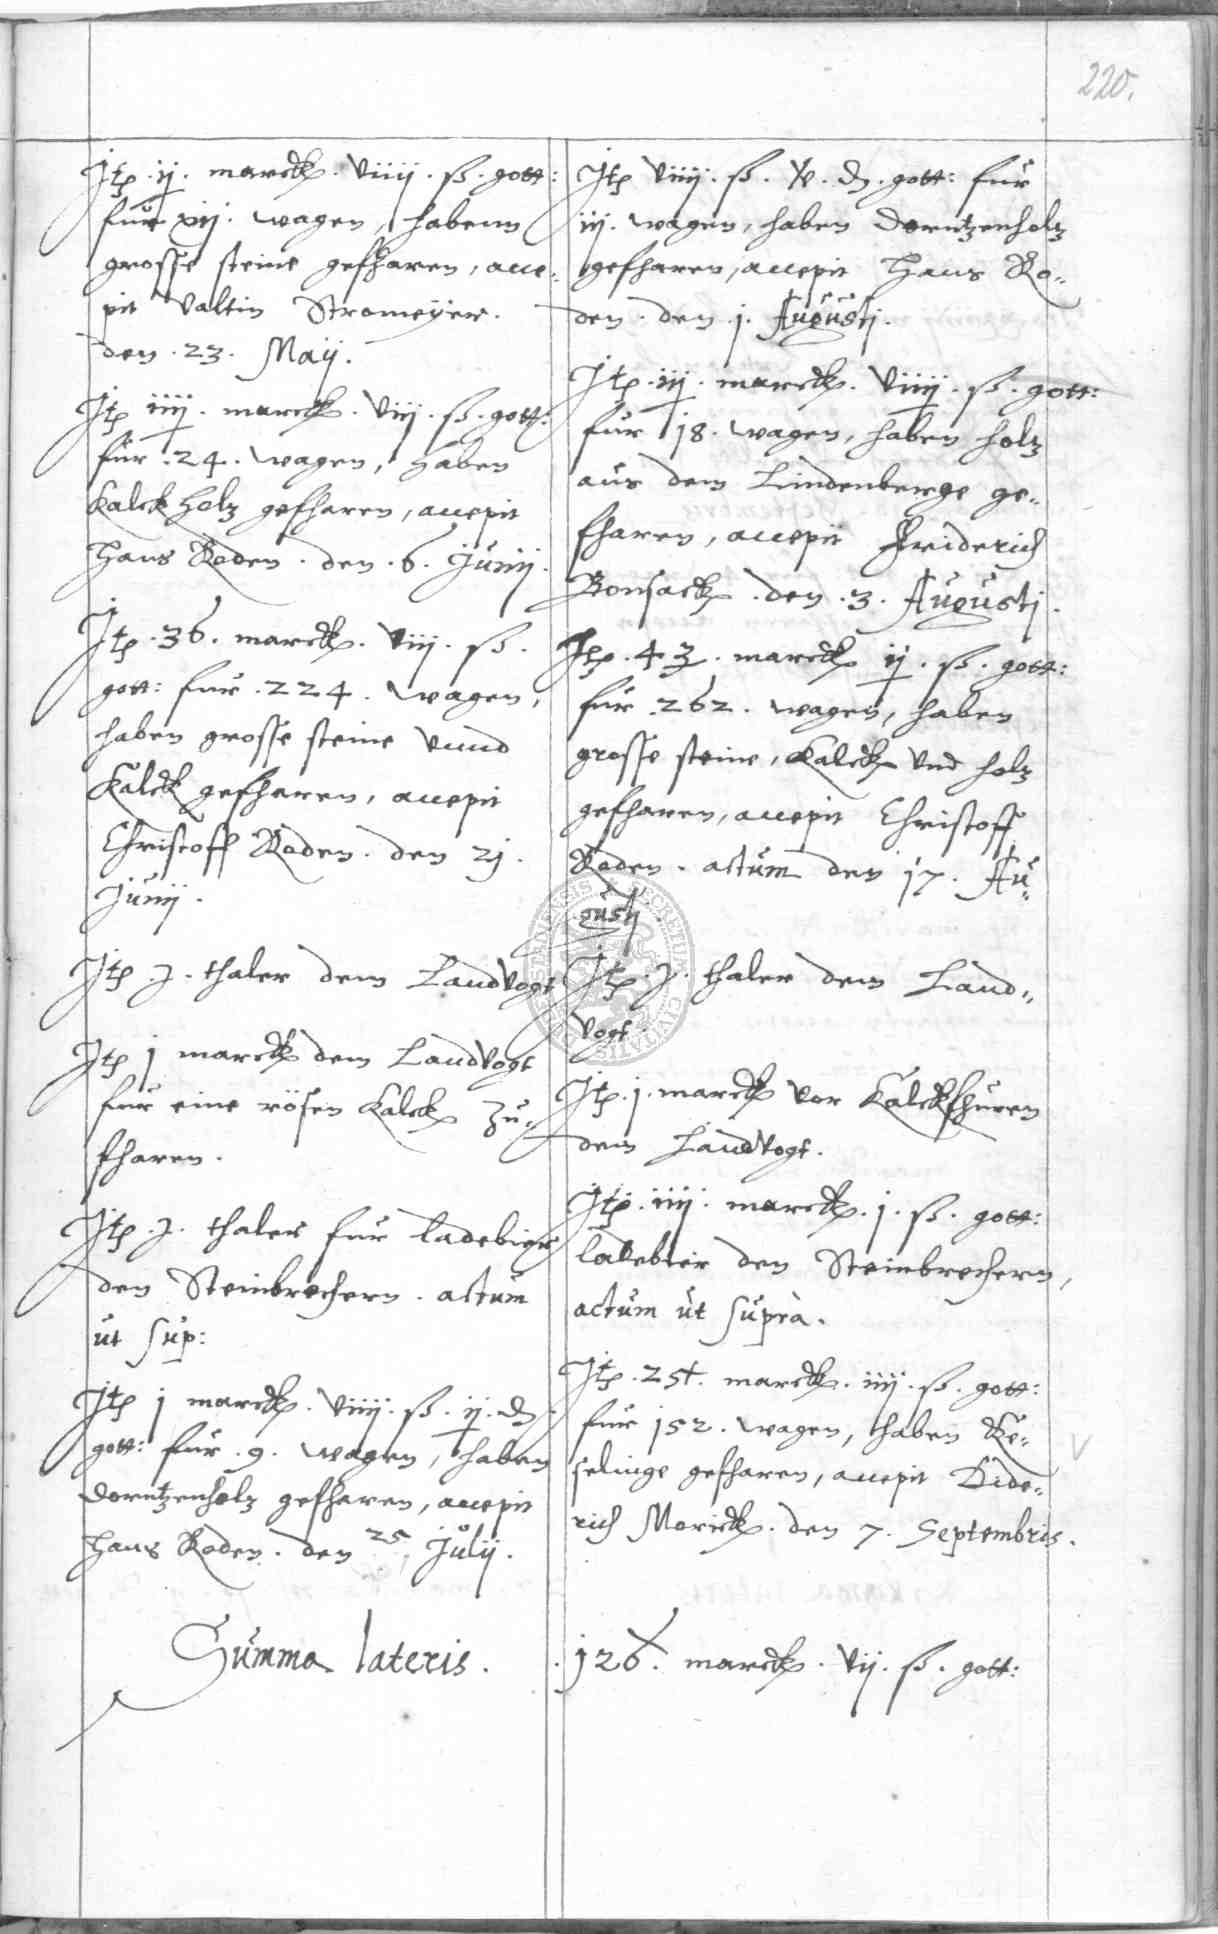 220.
Itp .ij. marck. viiij. ß. gott:
fur xij. wagen, habenn
grosse steine gefharen, acce-
pit Valtin Stromeÿer.
den .23. Maij.
Itp iiij. marck. viij. ß. gott:
für .24. wagen, haben
Kalck holz gefharen, accepit
Hans Roden. den .6. Junij.
Itp .36. marck. viij. ß.
gott: fur .224. wagen,
haben grosse steine vnnd
Kalck gefharen, accepit
Christoff Roden. den 21.
Junij.
Itp .j. thaler dem Landvogt
Itp j marck dem Landvogt
fur eine rösen Kalck zu-
fharen.
Itp .j. thaler fur ladebier
den Steinbrechern. actum
ut sup:
Itp j marck. viiij. ß. ij. d.
gott: fur .9. wagen, haben
dorntzenholz gefharen, accepit
Hans Roden. den 25 Julij.
Itp viiij. ß. v. d. gott: fur
iij. wagen, haben dorntzenholtz
gefharen, accepit Hans Ro-
den. den .1. Augustj.
Itp .iij. marck. viiij. ß. gott:
fur 18. wagen, haben holz
aus dem Lindenberge ge-
fharen, accepit Friderich
Bonsack. den .3. Augustj.
Itp .43. marck ij. ß. gott:
fur .262. wagen, haben
grosse steine, Kalck vnd holz
gefharen, accepit Christoff
Roden. actum den 17. Au-
gustj.
Itp .j. thaler dem Land-
vogt.
Itp .j. marck vor Kalckfhuren
dem Landvogt.
Itp .iiij. marck. j. ß. gott:
ladebier den Steinbrechern,
actum ut supra.
Itp .25½. marck. iiij. ß. gott:
fur 152. wagen, haben Ke-
selinge gefharen, accepit Dide-
rich Morick. den 7. Septembris.
Summa lateris. .126. marck. vij. ß. gott: